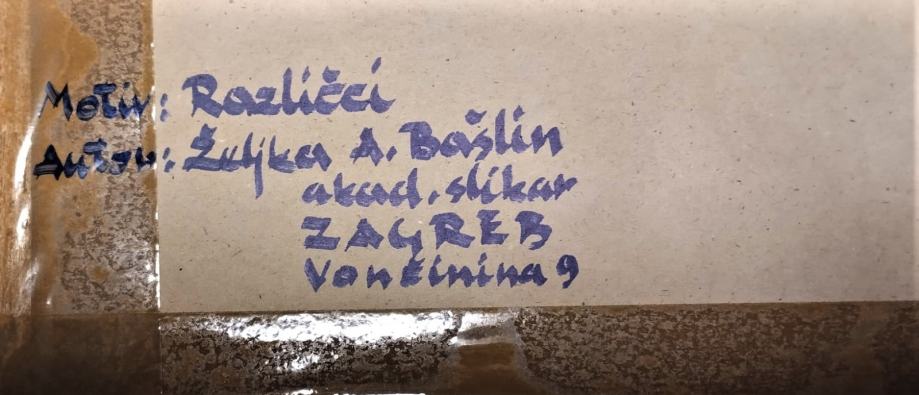 Motiv: Različci
Autor: Željka A. Bašlin
akad. slikar
ZAGREB
Vončinina 9